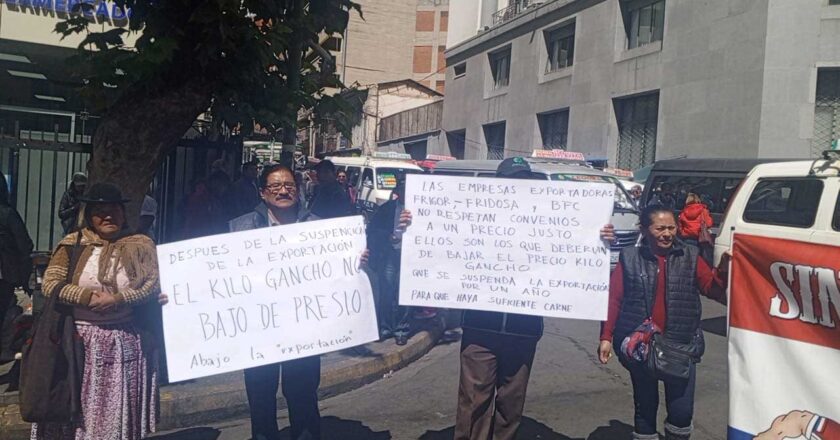 DESPUES DE LA SUSPENCIÓN
DE LA EXPORTACIÓN
EL KILO GANCHO NO
BAJO DE PRESIO
Abajo la "exportación"
LAS EMPRESAS EXPORTADORAS
FRIGOR,- FRIDOSA y BFC
NO RESPETAN CONVENIOS
A UN PRECIO JUSTO
ELLOS SON LOS QUE DEBERIAN
DE BAJAR EL PRECIO KILO
GANCHO
QUE SE SUSPENDA LA EXPORTACIÓN
POR UN AÑO
PARA QUE HAYA SUFICIENTE CARNE
SIN